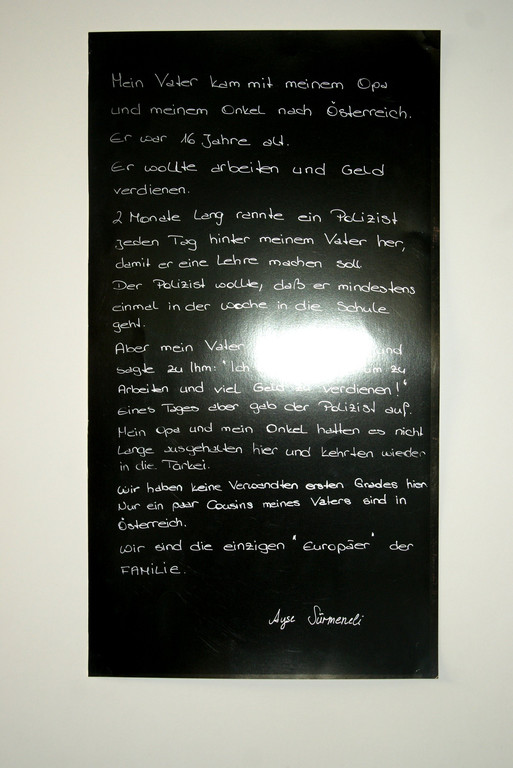 Mein Vater kam mit meinem Opa
und meinem Onkel nach Österreich.
Er war 16 Jahre alt.
Er wollte arbeiten und Geld
verdienen.
2 Monate Lang rannte ein Polizist
jeden Tag hinter meinem Vater her,
damit er eine Lehre machen soll
Der Polizist wollte, daß er mindestens
einmal in der woche in die Schule
geht.
Aber mein Vater und
sagte zu Ihm: "Ich um zu
Arbeiten und viel Geld zu verdienen!"
Eines Tages aber gab der Polizist auf.
Mein Opa und mein Onkel hatten es nicht
Lange ausgehalten hier und kehrten wieder
in die Türkei.
Wir haben keine Verwandten ersten Grades hier.
Nur ein paar Cousins meines Vaters sind in
Österreich.
Wir sind die einzigen "Europäer" der
FAMiLiE.
Ayse Sürmeneli